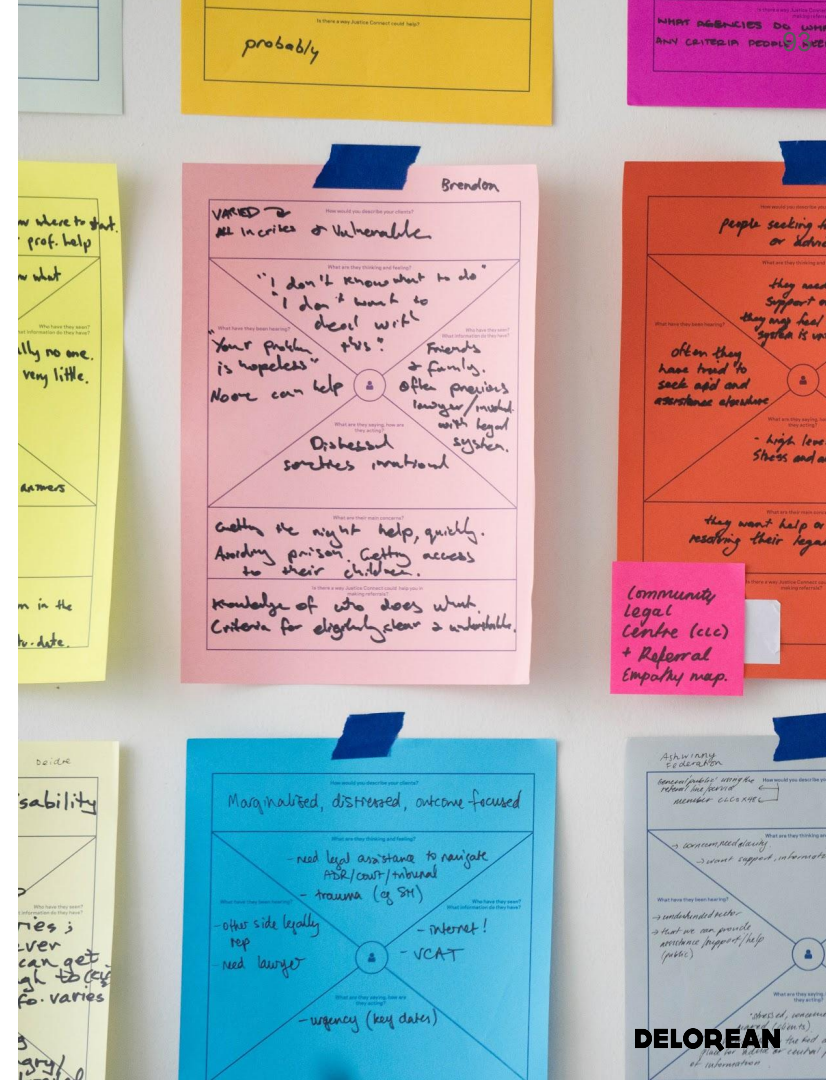 Is there a way Justice Connect could help?
probably
WHAT AGENCIES DO
ANY CRITERIA PEOPLE
93
where to start.
prof. help
what
Who have they seen?
What information do they have?
no one.
very little.
answers
in the
date.
Brendon
How would you describe your clients?
VARIED
All in crises & Vulnerable
What are they thinking and feeling?
"I don't know what to do"
"I don't want to
deal with
this!"
What have they been hearing?
"Your problem
is hopeless"
No one can help
Who have they seen?
What information do they have?
Friends
& family.
Often previous
lawyer/
with legal
system.
What are they saying, how are
they acting?
Distressed
irrational
What are their main concerns?
Getting the right help, quickly.
Avoiding prison. Getting access
to their children.
Is there a way Justice Connect could help you in
making referrals?
Knowledge of who does what.
Criteria for eligibility clear &
How would you describe
people seeking
or
What are they thinking and
they
support
they may feel
system is
What have they been hearing?
often they
have tried to
seek aid and
assistance elsewhere
What are they saying,
they acting?
- high
Stress and
What are their main
they want help or
resolving their
Community
Legal
Centre (CLC)
+ Referral
Empathy map.
Deidre
sability
Who have they seen?
What information do they have?
can get
varies
How would you describe your clients?
Marginalised, distressed, outcome focused
What are they thinking and feeling?
- need legal assistance to navigate
ADR/court/tribunal
- trauma (eg SH)
What have they been hearing?
- other side legally
rep
- need lawyer
Who have they seen?
What information do they have?
- internet!
- VCAT
What are they saying, how are
they acting?
- urgency (key dates)
Ashwinny
Federation
How would you describe your
general public using the
referral line/service
member CLCs
What are they thinking
What have they been hearing?
→ that we can provide
assistance/support/help
(public)
What are they saying,
they acting?
of information
DELOREAN